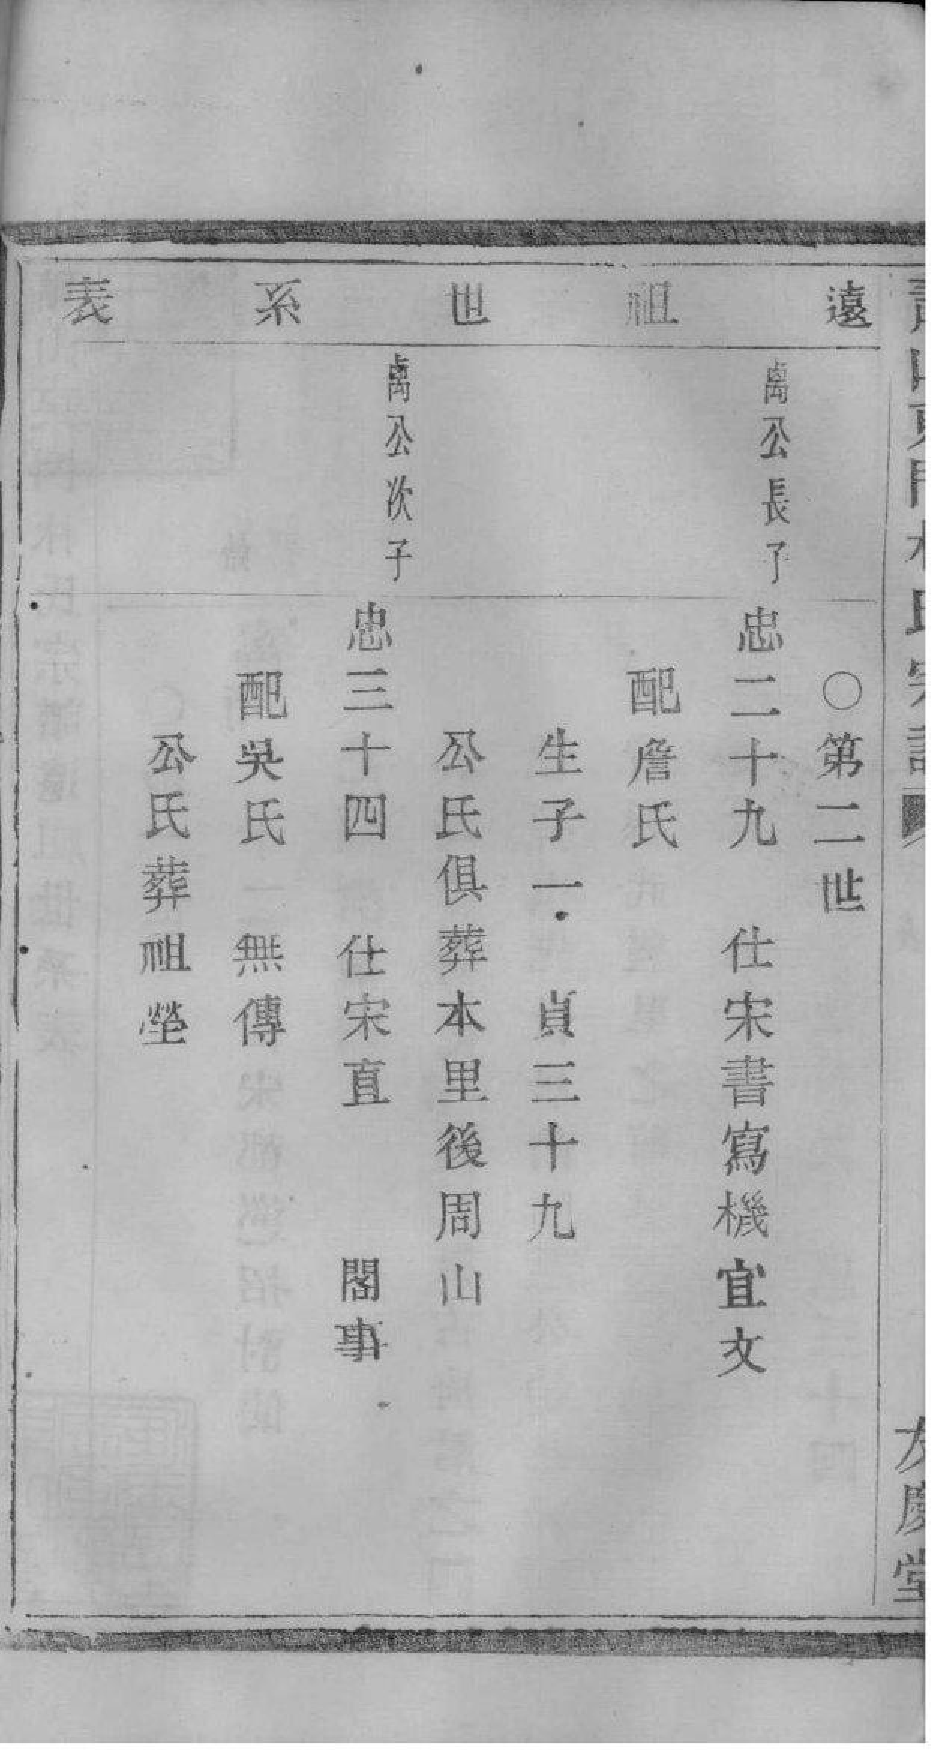 遠祖世系表
東門林氏宗譜
友慶堂
〇第二世
禼公長子
忠二十九 仕宋書寫機宜文
配詹氏
生子一 貞三十九
公氏俱葬本里後周山
禼公次子
忠三十四 仕宋直 閣事
配吳氏 無傳
公氏葬祖塋